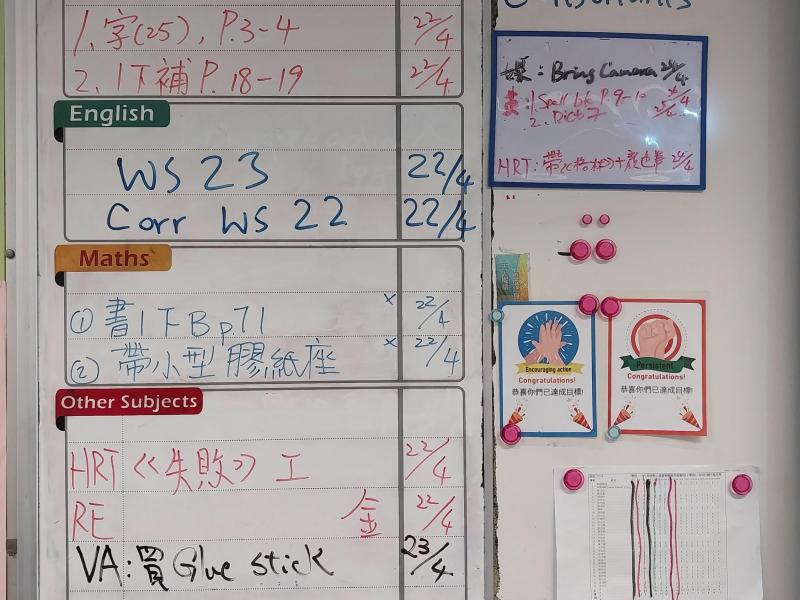 1. 字(25), P.3-4 22/4
2. 1下補 P.18-19 22/4
English
WS 23 22/4
Corr WS 22 22/4
Maths
① 書1下B p71 x 22/4
② 帶小型膠紙座 x 22/4
Other Subjects
HRT 《失敗》 工 22/4
RE 金 22/4
VA: 買 Glue stick 23/4
: Bring Camera 24/4
: 1. Spell bk P. 9-10
2. Dict 7 25/4
HRT: 帶 24/4
Encouraging action
Congratulations!
恭喜你們已達成目標!
Persistent
Congratulations!
恭喜你們已達成目標!